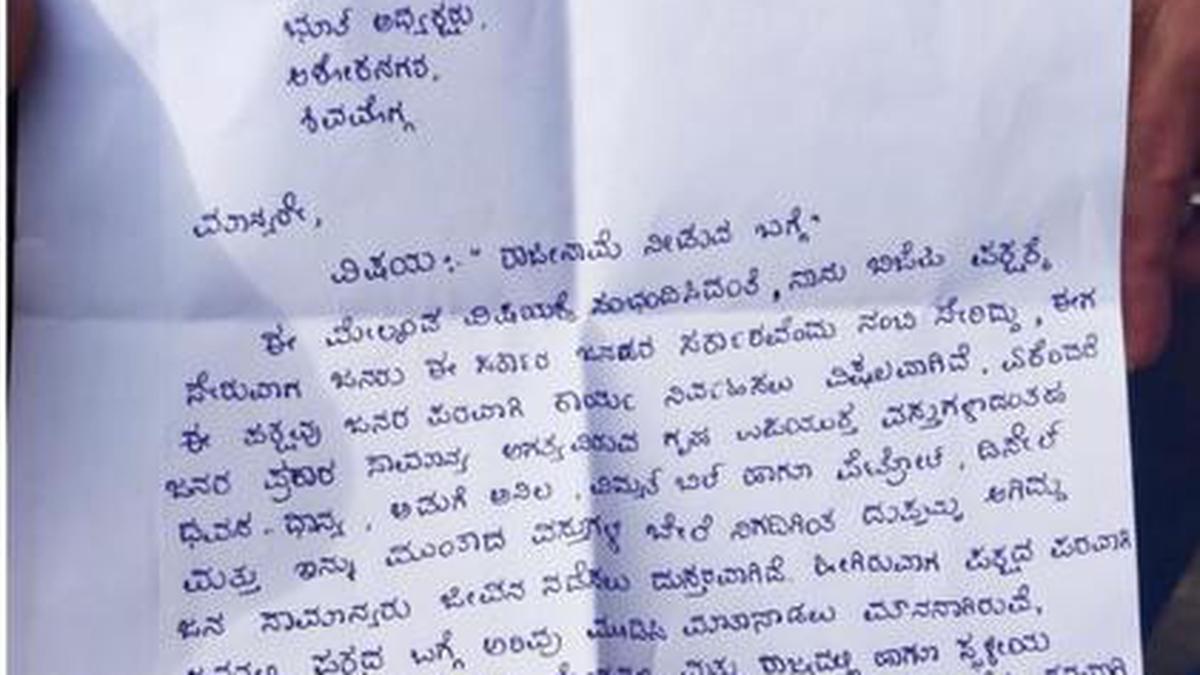 ಭೂತ್ ಅಧ್ಯಕ್ಷರು,
ಅಶೋಕನಗರ,
ಶಿವಮೊಗ್ಗ
ಮಾನ್ಯರೇ,
ವಿಷಯ:- "ರಾಜೀನಾಮೆ ನೀಡುವ ಬಗ್ಗೆ"
ಈ ಮೇಲ್ಕಂಡ ವಿಷಯಕ್ಕೆ ಸಂಭಂದಿಸಿದಂತೆ, ನಾನು ಬಿಜೆಪಿ ಪಕ್ಷಕ್ಕೆ
ಸೇರುವಾಗ ಜನರು ಈ ಸರ್ಕಾರ ಜನಪರ ಸರ್ಕಾರವೆಂದು ನಂಬಿ ಸೇರಿದ್ದು, ಈಗ
ಈ ಪಕ್ಷವು ಜನರ ಪರವಾಗಿ ಕಾರ್ಯ ನಿರ್ವಹಿಸಲು ವಿಫಲವಾಗಿದೆ. ಏಕೆಂದರೆ
ಜನರ ಪ್ರಕಾರ ಸಾಮಾನ್ಯ ಅಗತ್ಯವಿರುವ ಗೃಹ ವಸ್ತುಗಳಾದಂತಹ
ಧವಸ-ಧಾನ್ಯ, ಅಡುಗೆ ಅನಿಲ, ವಿದ್ಯುತ್ ಬಿಲ್ ಹಾಗೂ ಪೆಟ್ರೋಲ್, ಡಿಸೇಲ್
ಮತ್ತು ಇನ್ನು ಮುಂತಾದ ವಸ್ತುಗಳ ಬೇರೆ ನಿಗದಿಗಿಂತ ದುಪ್ಪಟ್ಟು ಆಗಿದ್ದು
ಜನ ಸಾಮಾನ್ಯರು ಜೀವನ ನಡೆಸಲು ದುಸ್ತರವಾಗಿದೆ. ಹೀಗಿರುವಾಗ ಪಕ್ಷದ ಪರವಾಗಿ
ಪಕ್ಷದ ಬಗ್ಗೆ ಅರಿವು ಮೂಡಿಸಿ ಮಾತನಾಡಲು ಮೌನನಾಗಿರುವೆ,
ಮತ್ತು ರಾಜ್ಯದಲ್ಲಿ ಹಾಗೂ ಸ್ಥಳೀಯ